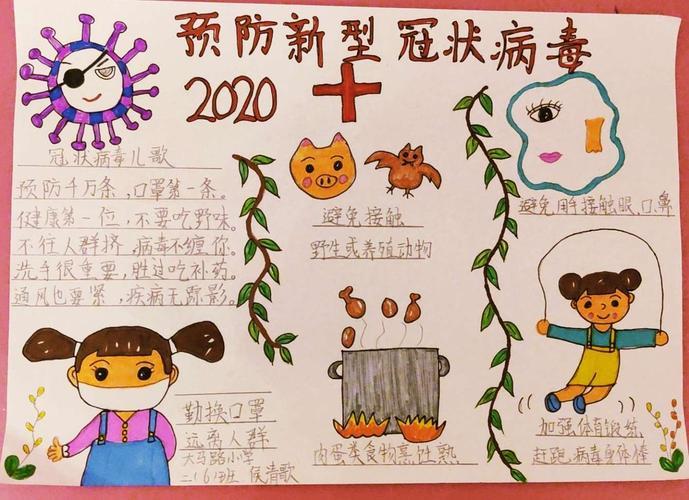 预防新型冠状病毒
2020
冠状病毒儿歌
预防千万条,口罩第一条。
健康第一位,不要吃野味。
不往人群挤,病毒不缠你。
洗手很重要,胜过吃补药。
通风也要紧,疾病无踪影。
避免接触
野生或养殖动物
避免用手接触眼、口、鼻
勤换口罩
远离人群
大马路小学
二(6)班 侯清歌
肉蛋类食物烹饪熟
加强体育锻炼
赶跑病毒身体棒